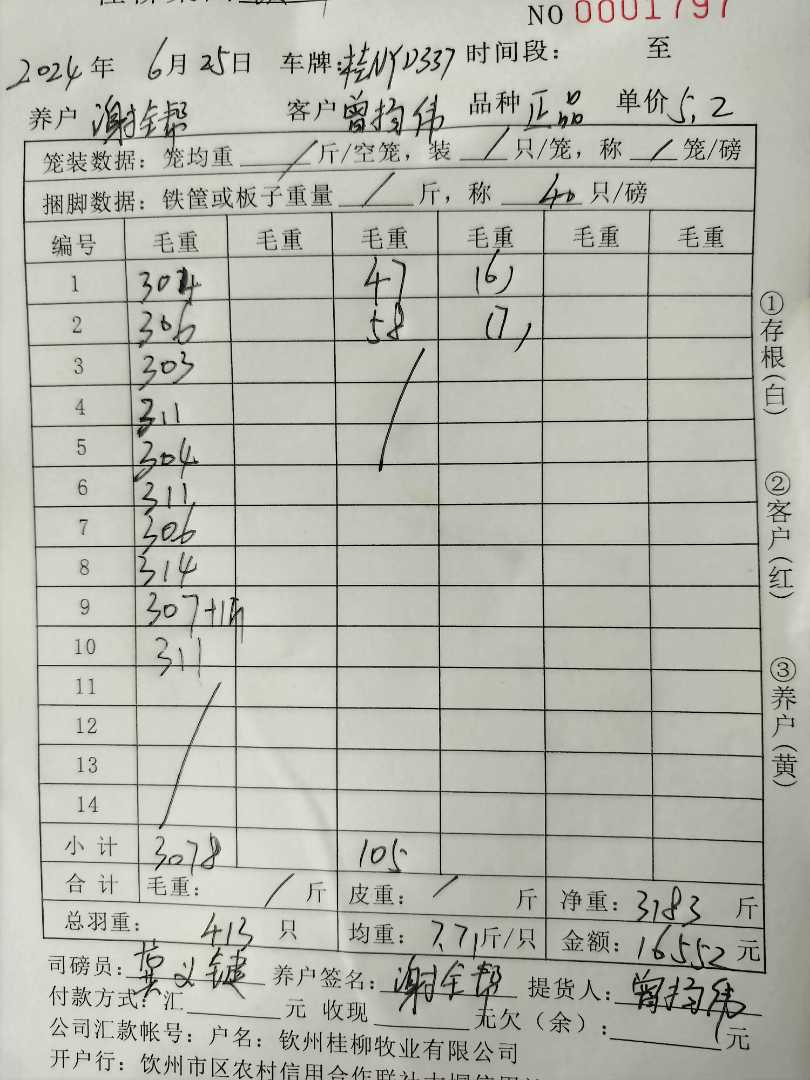 NO 0001797
2024年 6月25日 车牌:桂NYD337 时间段: 至
养户 谢全帮 客户 曾均伟 品种 正品 单价5.2
笼装数据: 笼均重 / 斤/空笼, 装 / 只/笼, 称 / 笼/磅
捆脚数据: 铁筐或板子重量 / 斤, 称 40 只/磅
编号 毛重 毛重 毛重 毛重 毛重 毛重
1 304 47 (6)
2 306 58 (7)
3 303
4 311
5 304
6 311
7 306
8 314
9 307+1只
10 311
11
12
13
14
小计 3078 105
合计 毛重: / 斤 皮重: / 斤 净重: 3183 斤
总羽重: 413 只 均重: 7.71斤/只 金额: 16552元
司磅员: 黄义键 养户签名: 谢全帮 提货人: 曾均伟
付款方式: 汇 元 收现 元欠(余): 元
公司汇款帐号: 户名: 钦州桂柳牧业有限公司
开户行: 钦州市区农村信用合作联社大垌信用
①存根(白)
②客户(红)
③养户(黄)